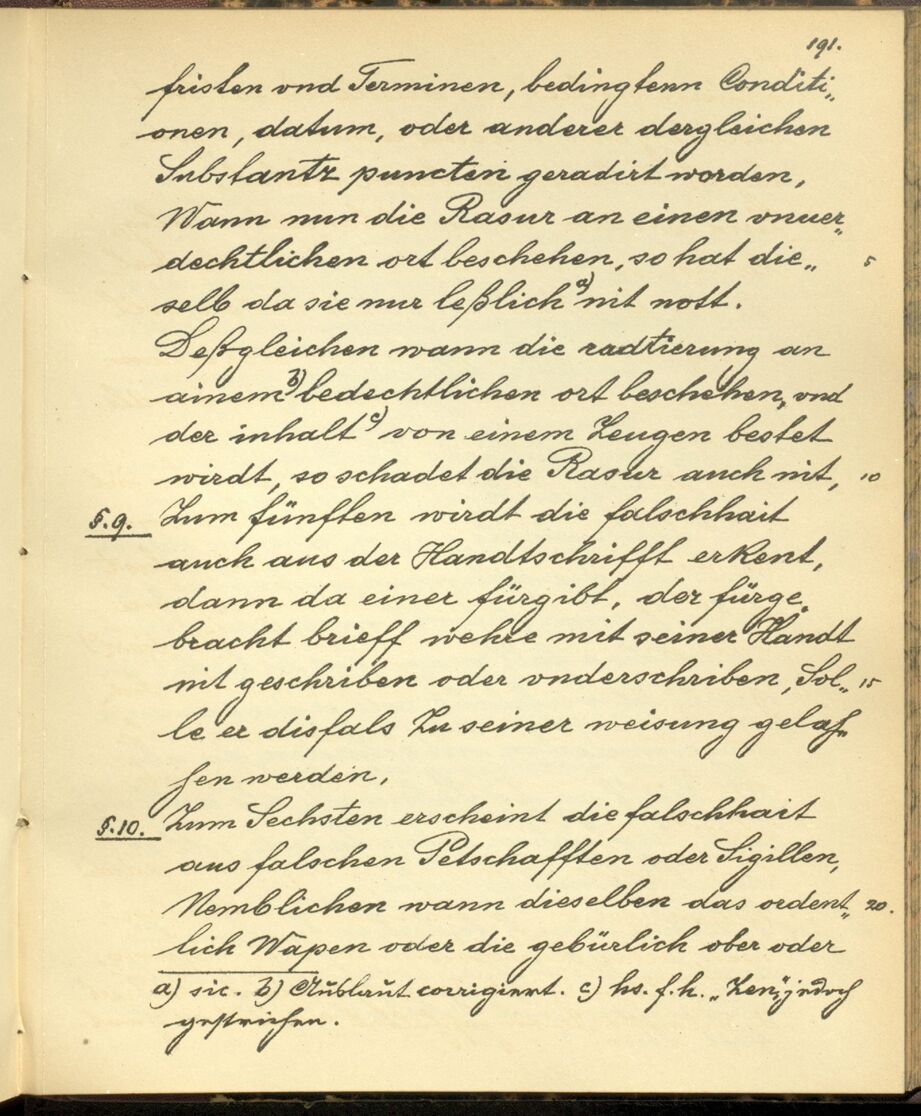 191.
fristen vnd Terminen, bedingtenn Conditi„
onen, datum, oder anderer dergleichen
Substantz puncten geradirt worden,
Wann nun die Rasur an einen vnuer„
dechtlichen ort beschehen, so hat die„ 5
selb da sie nur leßlich a) nit nott.
Deßgleichen wann die radtierung an
ainem b) bedechtlichen ort beschehen, vnd
der inhalt c) von einem Zeugen bestet
wirdt, so schadet die Rasur auch nit, 10
§.9. Zum fünften wirdt die falschhait
auch aus der Handtschrifft erkent,
dann da einer fürgibt, der fürge„
bracht brieff wehre mit seiner Handt
nit geschriben oder vnderschriben, Sol„ 15
le er disfals Zu seiner weisung gelaſ„
ſen werden,
§.10. Zum Sechsten erscheint die falschhait
aus falschen Petschafften oder Sigillen,
Nemblichen wann dieselben das ordent„ 20.
lich Wapen oder die gebürlich ober oder
a) sic. b) Außlaut corrigiert. c) hs. f. h. „Zen„ jedoch
gestrichen.